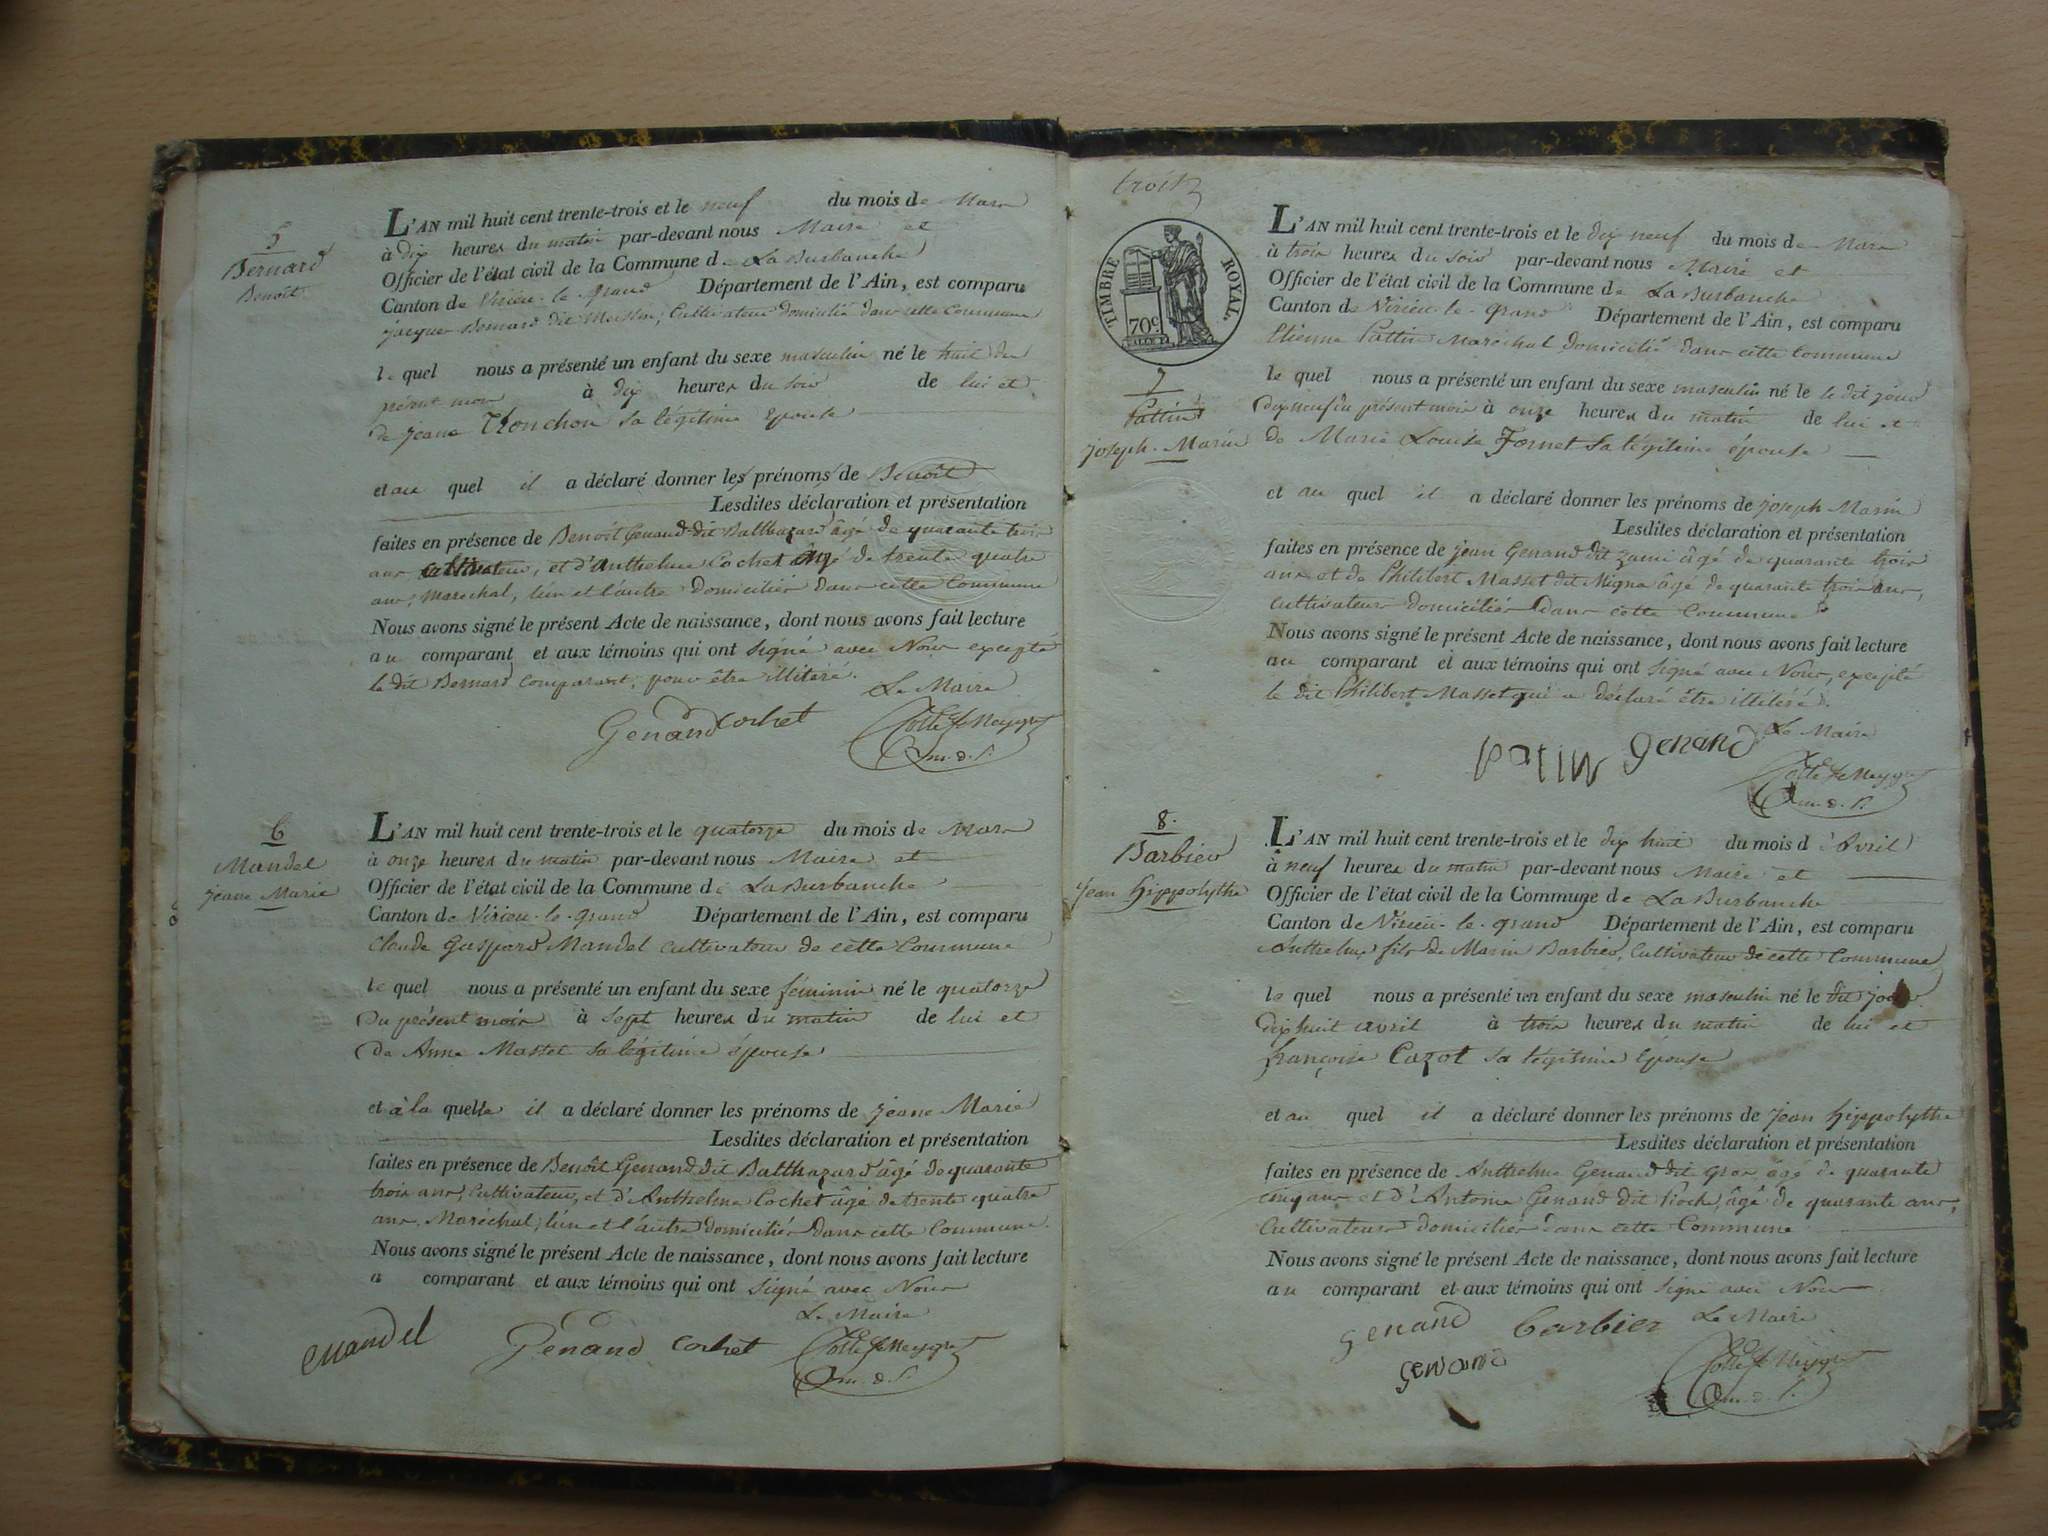 5
Bernard
Benoit
L'AN mil huit cent trente-trois et le neuf du mois de Mars
à dix heures du matin par-devant nous Maire et
Officier de l'état civil de la Commune de La Burbanche
Canton de Virieu-le-grand Département de l'Ain, est comparu
jacques Bernard dit Cultivateur domicilié dans cette Commune
le quel nous a présenté un enfant du sexe masculin né le huit du
présent mois à dix heures du soir de lui et
de jeane Tronchon sa légitime Epouse
et au quel il a déclaré donner les prénoms de Benoit
Lesdites déclaration et présentation
faites en présence de Benoit Genand dit Balthazard âgé de quarante trois
ans cultivateur, et d'Anthelme Cochet âgé de trente quatre
ans, Maréchal, l'un et l'autre domiciliés dans cette Commune
Nous avons signé le présent Acte de naissance, dont nous avons fait lecture
au comparant et aux témoins qui ont signé avec Nous excepté
le dit Bernard comparant, pour être illitéré.
Le Maire
Genand cochet
6
Mandel
jeane Marie
L'AN mil huit cent trente-trois et le quatorze du mois de Mars
à onze heures du matin par-devant nous Maire et
Officier de l'état civil de la Commune de La Burbanche
Canton de Virieu-le-grand Département de l'Ain, est comparu
Claude Gaspard Mandel cultivateur de cette Commune
le quel nous a présenté un enfant du sexe féminin né le quatorze
du présent mois à sept heures du matin de lui et
de Anne Masset sa légitime épouse
et à la quelle il a déclaré donner les prénoms de jeane Marie
Lesdites déclaration et présentation
faites en présence de Benoît Genand dit Balthazard âgé de quarante
trois ans, Cultivateur, et d'Anthelme Cochet âgé de trente quatre
ans, Maréchal, l'un et l'autre domiciliés dans cette Commune.
Nous avons signé le présent Acte de naissance, dont nous avons fait lecture
a comparant et aux témoins qui ont signé avec Nous
Le Maire
mandel Genand cochet
trois
TIMBRE ROYAL
70c
7
Pattin
joseph-Marin
L'AN mil huit cent trente-trois et le dix neuf du mois de Mars
à trois heures du soir par-devant nous Maire et
Officier de l'état civil de la Commune de La Burbanche
Canton de Virieu-le-grand Département de l'Ain, est comparu
Etienne Pattin Maréchal domicilié dans cette Commune
le quel nous a présenté un enfant du sexe masculin né le le dit jour
dix neuf du présent mois à onze heures du matin de lui et
de Marie Louise Fornet sa légitime épouse
et au quel il a déclaré donner les prénoms de joseph Marin
Lesdites déclaration et présentation
faites en présence de jean Genand dit zami âgé de quarante trois
ans et de Philibert Masset dit Migna âgé de quarante trois ans,
cultivateurs domiciliés dans cette Commune
Nous avons signé le présent Acte de naissance, dont nous avons fait lecture
au comparant et aux témoins qui ont signé avec Nous, excepté
le dit Philibert Masset qui a déclaré être illitéré.
Le Maire
patin genand
8.
Barbier
jean hippolythe
L'AN mil huit cent trente-trois et le dix huit du mois d'Avril
à neuf heures du matin par-devant nous Maire et
Officier de l'état civil de la Commune de La Burbanche
Canton de Virieu-le-grand Département de l'Ain, est comparu
Anthelme fils de Marin Barbier, Cultivateur de cette Commune
le quel nous a présenté un enfant du sexe masculin né le dit jour
dix huit avril à trois heures du matin de lui et
françoise Cazot sa légitime Epouse
et au quel il a déclaré donner les prénoms de jean hippolythe
Lesdites déclaration et présentation
faites en présence de Anthelme Genand dit gros âgé de quarante
cinq ans et d'Antoine Genand dit âgé de quarante ans,
Cultivateurs domiciliés dans cette Commune
Nous avons signé le présent Acte de naissance, dont nous avons fait lecture
au comparant et aux témoins qui ont signé avec Nous
Le Maire
genand barbier
genand